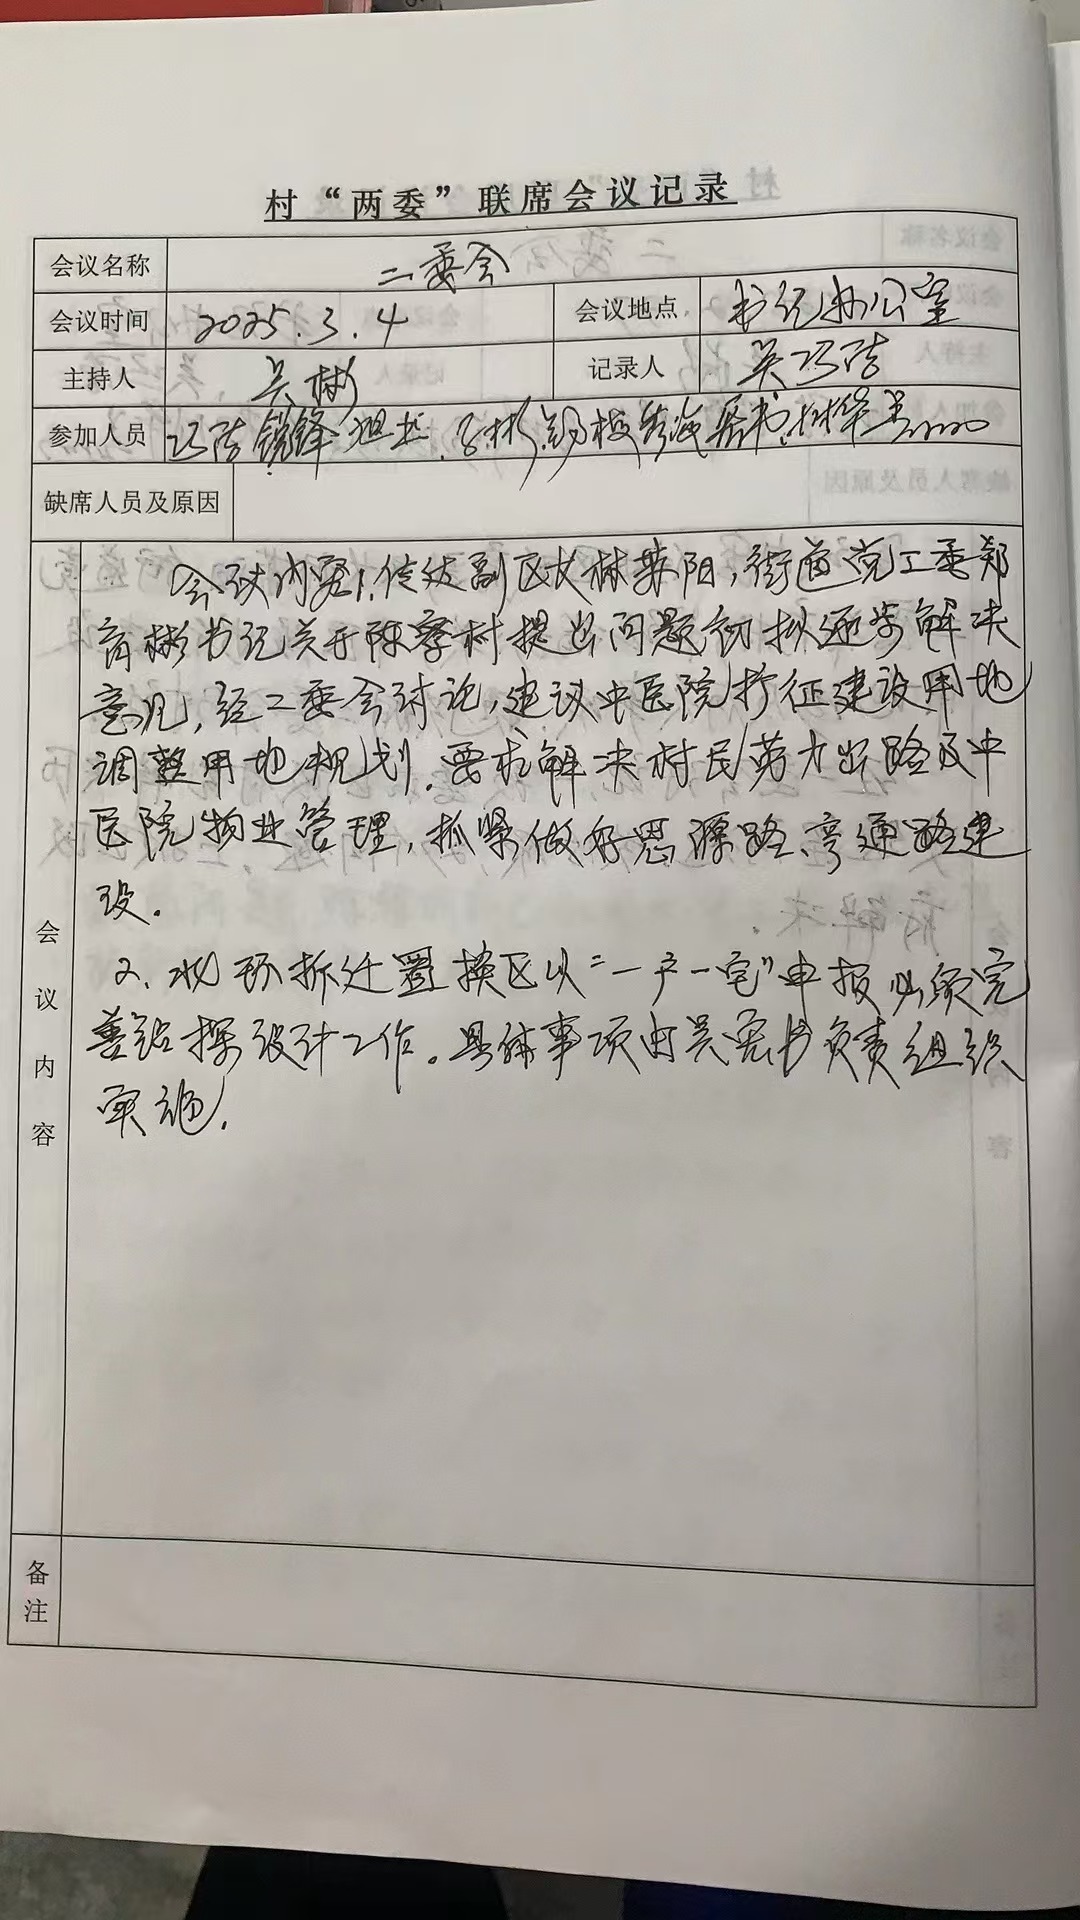 村“两委”联席会议记录
会议名称 二委会
会议时间 2025.3.4 会议地点 书记办公室
主持人 吴彬 记录人 吴巧浩
参加人员 巧浩 锐锋
缺席人员及原因
会议内容
会议内容1.传达副区长林 阳,街道党工委郑
育彬书记关于陈寮村提出问题初拟逐步解决
意见,经二委会讨论,建议中医院扩征建设用地
调整用地规划.要求解决村民劳力出路及中
医院物业管理,抓紧做好思源路、亨通路建
设.
2. 环拆迁置换区以“一户一宅”申报必须完
善钻探设计工作。具体事项由吴 书负责组织
实施.
备注